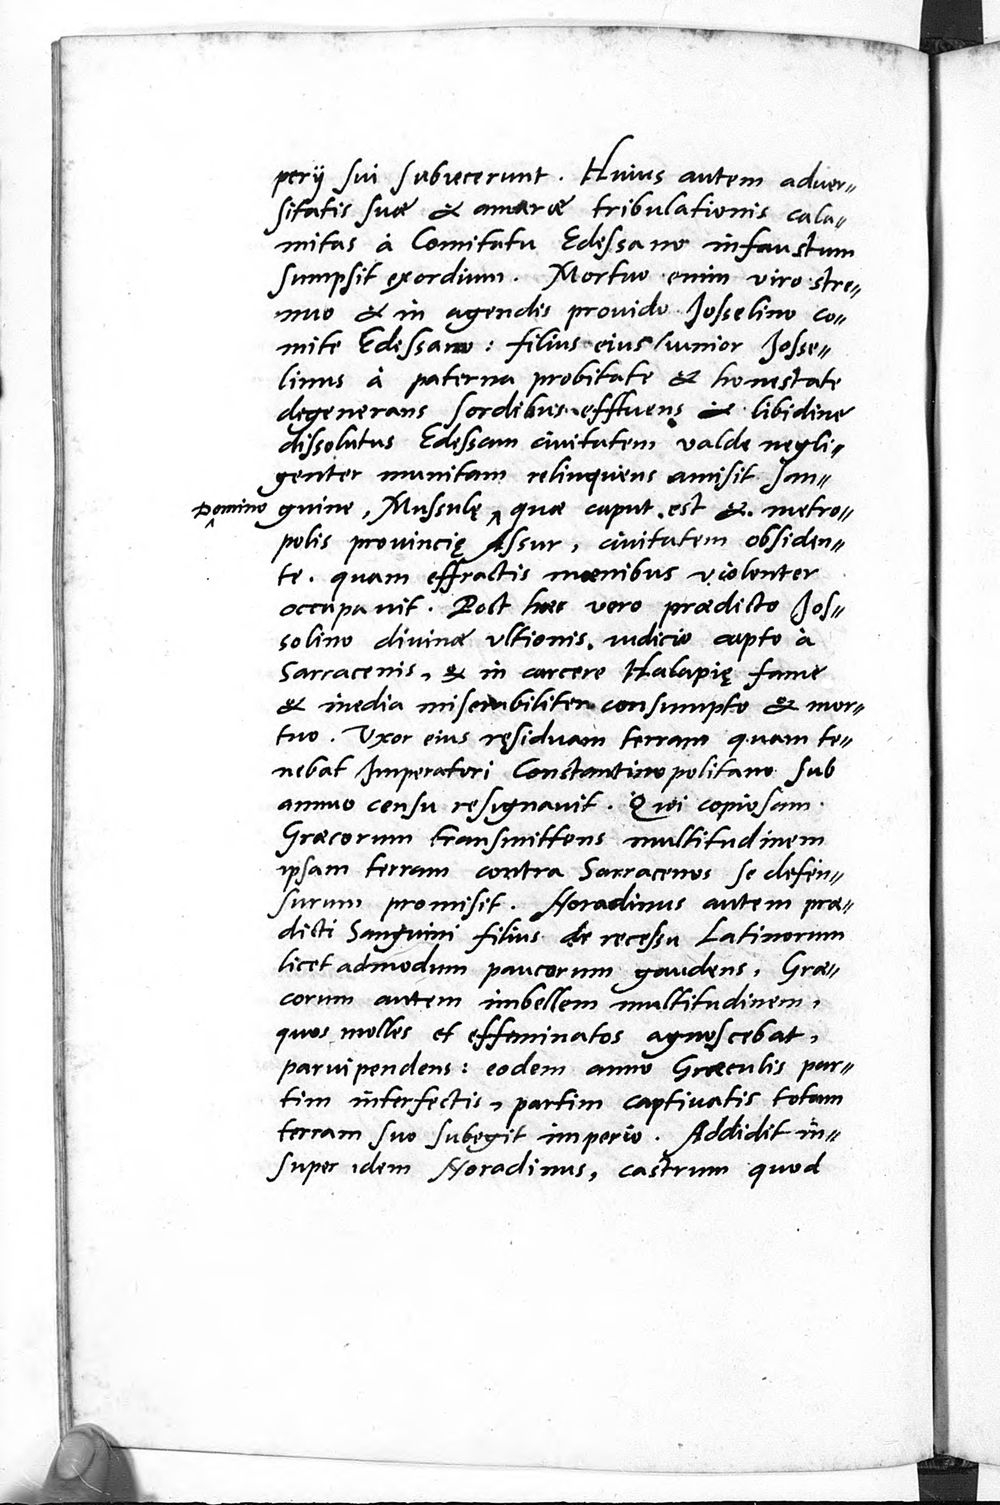 perij sui subiecerunt. Huius autem aduer„
sitatis suæ & amaræ tribulationis cala„
mitas à Comitatu Edessano infaustum
sumpsit exordium. Mortuo enim viro stre„
nuo & in agendis prouido Josselino co„
mite Edessano: filius eius iunior Josse„
linus à paterna probitate & honestate
degenerans sordibus effluens & libidine
dissolutus Edessam ciuitatem valde negli„
genter munitam relinquens amisit San„
Domino guine, Mussulę ^ quæ caput est & metro„
polis prouincię Assur, ciuitatem obsiden„
te. quam effractis mœnibus violenter
occupauit. Post hæc vero prædicto Jos„
solino diuinæ vltionis iudicio capto à
Sarracenis, & in carcere Halapię fame
& inedia miserabiliter consumpto & mor„
tuo. Vxor eius ręsiduam terram quam te„
nebat Imperatori Constantinopolitano sub
annuo censu resignauit. Qui copiosam
Græcorum transmittens multitudinem
ipsam terram contra Sarracenos se defen„
surum promisit. Noradinus autem præ„
dicti Sanguini filius de recessu Latinorum
licet admodum paucorum gaudens, Græ„
corum autem imbellem multitudinem,
quos molles et effeminatos agnoscebat,
paruipendens: eodem anno Græculis par„
tim interfectis, partim captiuatis totam
terram suo subegit imperio. Addidit in„
super idem Noradinus, castrum quod